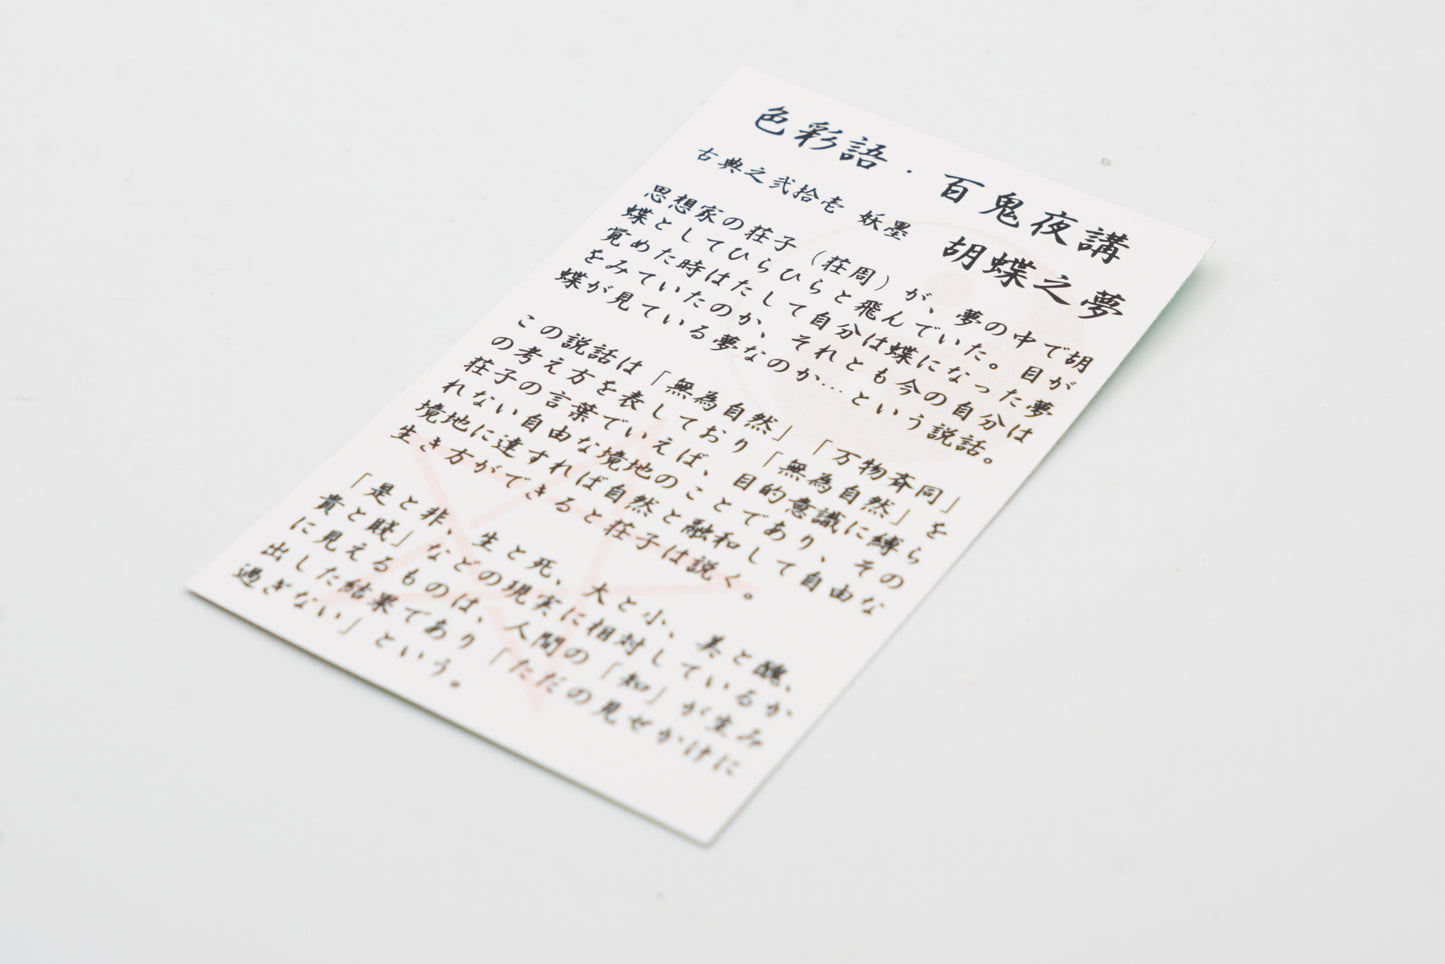 色彩語・百鬼夜講
古典之弐拾壱 妖墨 胡蝶之夢
思想家の荘子(荘周)が、夢の中で胡
蝶としてひらひらと飛んでいた。目が
覚めた時はたして自分は蝶になった夢
をみていたのか、それとも今の自分は
蝶が見ている夢なのか…という説話。
この説話は「無為自然」「万物斉同」
の考え方を表しており「無為自然」を
荘子の言葉でいえば、目的意識に縛ら
れない自由な境地のことであり、その
境地に達すれば自然と融和して自由な
生き方ができると荘子は説く。
「是と非、生と死、大と小、美と醜、
貴と賎」などの現実に相対しているか
に見えるものは、人間の「知」が生み
出した結果であり「ただの見せかけに
過ぎない」という。